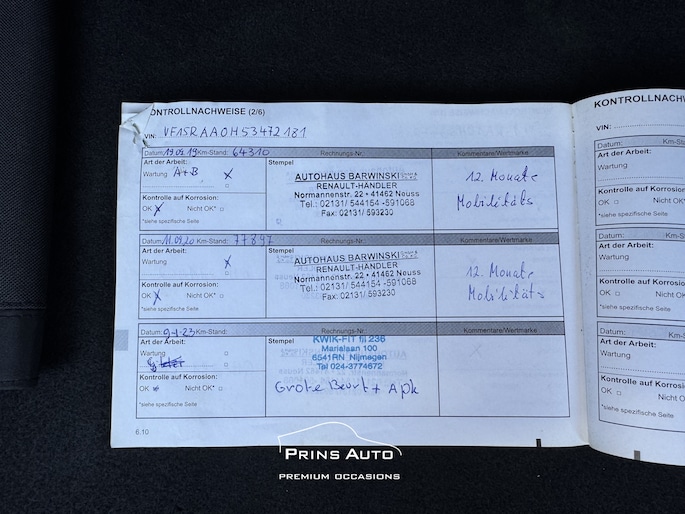 KONTROLLNACHWEISE (2/6)
VIN: VF15RAA0H53472181
Datum: 19.09.19 Km-Stand: 64310 Rechnungs-Nr.: Kommentare/Wertmarke
Art der Arbeit: Stempel
Wartung A+B X
AUTOHAUS BARWINSKI
RENAULT-HÄNDLER
Normannenstr. 22 • 41462 Neuss
Tel.: 02131/ 544154 -591068
Fax: 02131/ 593230
12. Monate
Mobilitäts
Kontrolle auf Korrosion:
OK X Nicht OK*
*siehe spezifische Seite
Datum: 11.09.20 Km-Stand: 77897 Rechnungs-Nr.: Kommentare/Wertmarke
Art der Arbeit: Stempel
Wartung X
AUTOHAUS BARWINSKI
RENAULT-HÄNDLER
Normannenstr. 22 • 41462 Neuss
Tel.: 02131/ 544154 -591068
Fax: 02131/ 593230
12. Monate
Mobilitäts
Kontrolle auf Korrosion:
OK X Nicht OK*
*siehe spezifische Seite
Datum: 9-1-23 Km-Stand: Rechnungs-Nr.: Kommentare/Wertmarke
Art der Arbeit: Stempel
Wartung
KWIK-FIT fil 236
Marialaan 100
6541RN Nijmegen
Tel 024-3774672
Grote Beurt + Apk
Kontrolle auf Korrosion:
OK Nicht OK*
*siehe spezifische Seite
6.10
KONTROLLNACHW
VIN:
Datum: Km-S
Art der Arbeit:
Wartung
Kontrolle auf Korrosion:
OK Nicht OK*
*siehe spezifische Seite
Datum: Km-St
Art der Arbeit:
Wartung
Kontrolle auf Korrosion:
OK Nicht OK*
*siehe spezifische Seite
Datum: Km-
Art der Arbeit:
Wartung
Kontrolle auf Korrosion:
OK Nicht OK
*siehe spezifische Seite
PRINS AUTO
PREMIUM OCCASIONS